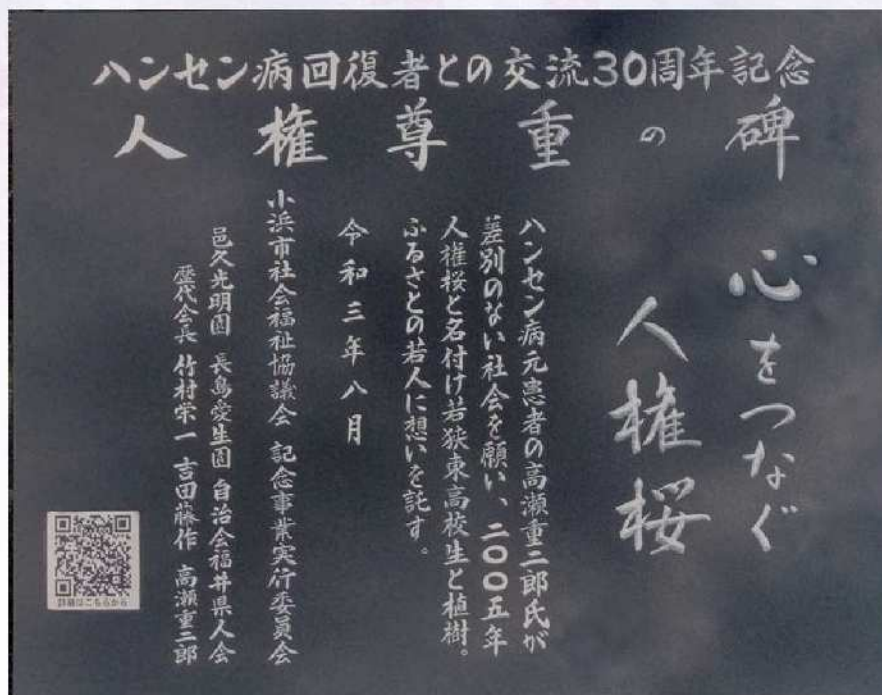 ハンセン病回復者との交流30周年記念
人権尊重の碑
心をつなぐ
人権桜
ハンセン病元患者の高瀬重二郎氏が
差別のない社会を願い、二〇〇五年
人権桜と名付け若狭東高校生と植樹。
ふるさとの若人に想いを託す。
令和三年八月
小浜市社会福祉協議会 記念事業実行委員会
邑久光明園 長島愛生園 自治会福井県人会
歴代会長 竹村栄一 吉田藤作 高瀬重二郎
詳細はこちらから